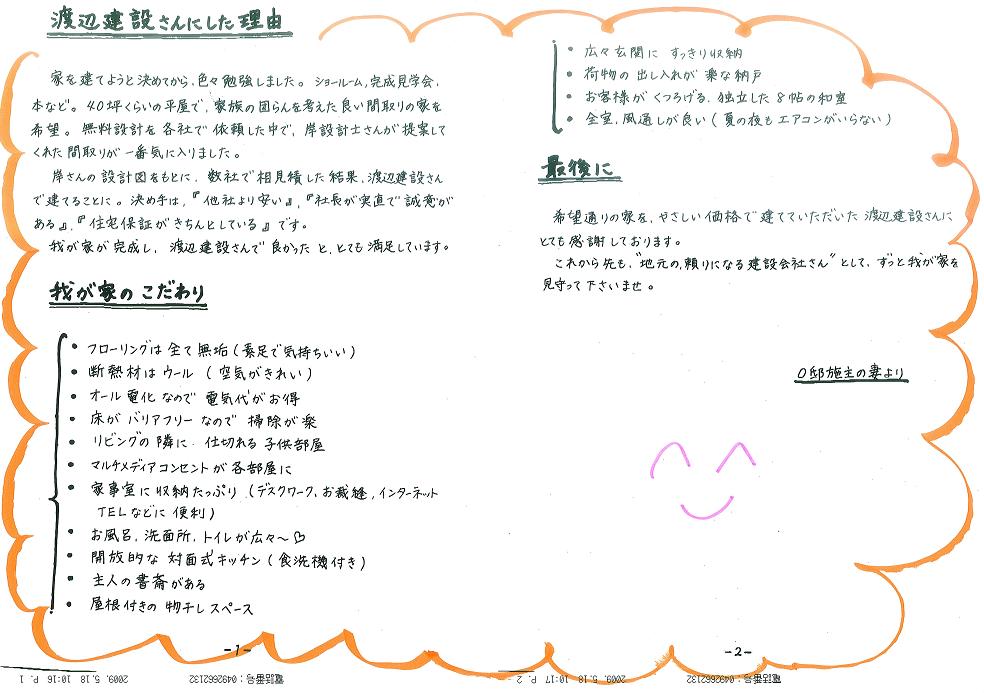 渡辺建設さんにした理由
家を建てようと決めてから、色々勉強しました。ショールーム、完成見学会、
本など。40坪くらいの平屋で、家族の団らんを考えた良い間取りの家を
希望。無料設計を各社で依頼した中で、岸設計士さんが提案して
くれた間取りが一番気に入りました。
岸さんの設計図をもとに、数社で相見積した結果、渡辺建設さん
で建てることに。決め手は、『他社より安い』、『社長が実直で誠意が
ある』、『住宅保証がきちんとしている』です。
我が家が完成し、渡辺建設さんで良かったと、とても満足しています。
我が家のこだわり
・フローリングは全て無垢(素足で気持ちいい)
・断熱材はウール(空気がきれい)
・オール電化なので電気代がお得
・床がバリアフリーなので掃除が楽
・リビングの隣に仕切れる子供部屋
・マルチメディアコンセントが各部屋に
・家事室に収納たっぷり(デスクワーク、お裁縫、インターネット
TELなどに便利)
・お風呂、洗面所、トイレが広々〜♡
・開放的な対面式キッチン(食洗機付き)
・主人の書斎がある
・屋根付きの物干しスペース
-1-
・広々玄関にすっきり収納
・荷物の出し入れが楽な納戸
・お客様がくつろげる、独立した8帖の和室
・全室、風通しが良い(夏の夜もエアコンがいらない)
最後に
希望通りの家を、やさしい価格で建てていただいた渡辺建設さんに
とても感謝しております。
これから先も、"地元の、頼りになる建設会社さん"として、ずっと我が家を
見守って下さいませ。
O邸施主の妻より
-2-
電話番号:0492662132 2009. 5.18 10:16 P. 1
電話番号:0492662132 2009. 5.18 10:17 P. 2